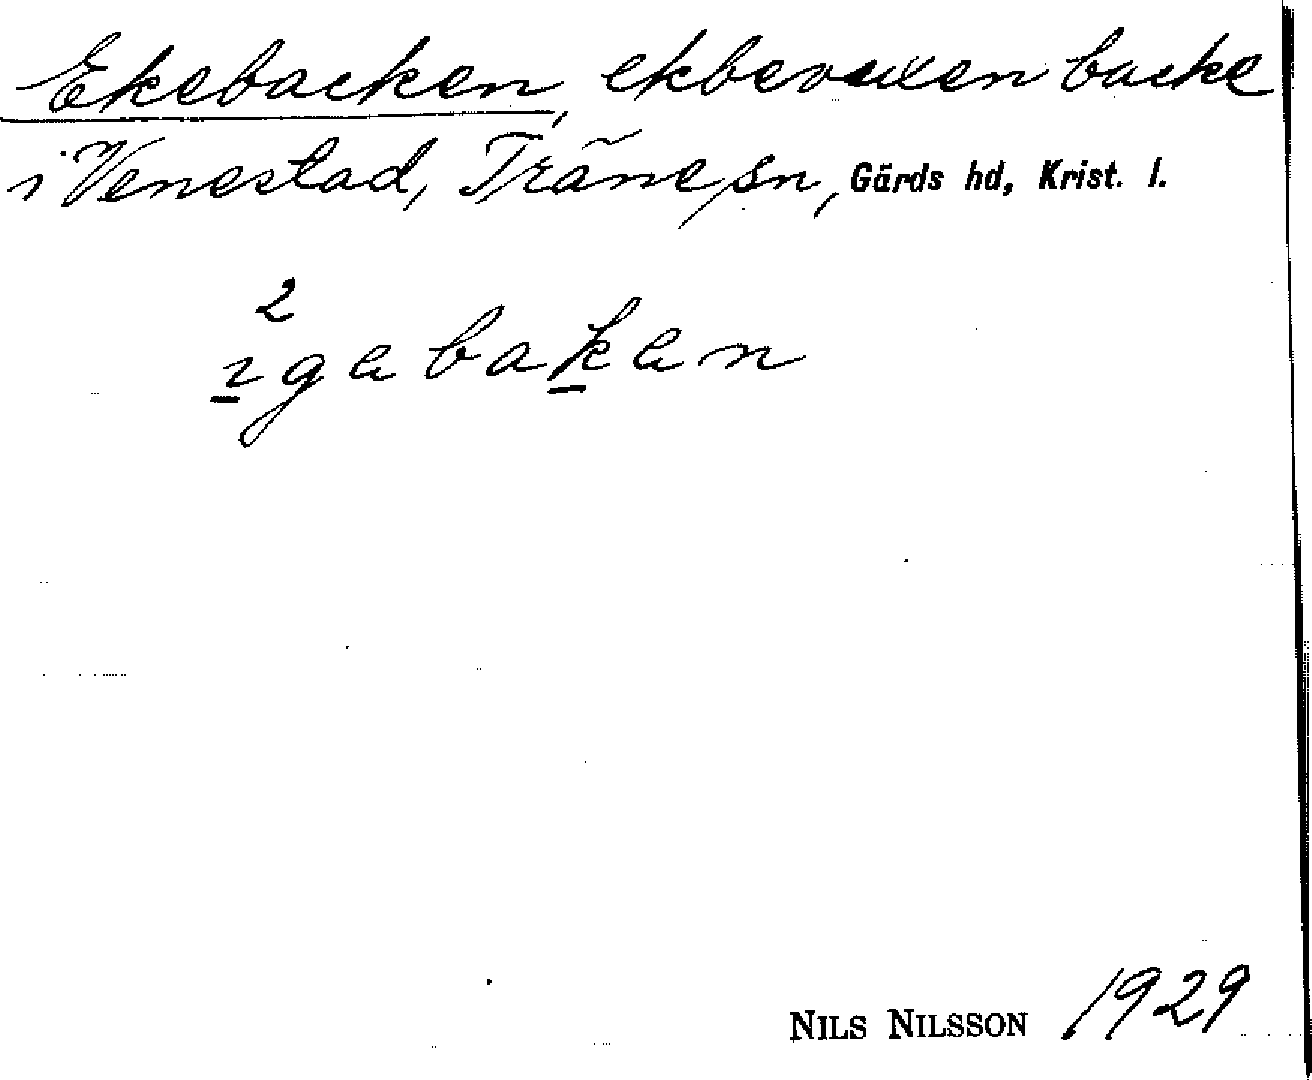 Ekebacken, ekbevuxen backe
i Venestad, Träne sn, Gärds hd, Krist. l.
2
ıgebaken
NILS NILSSON 1929